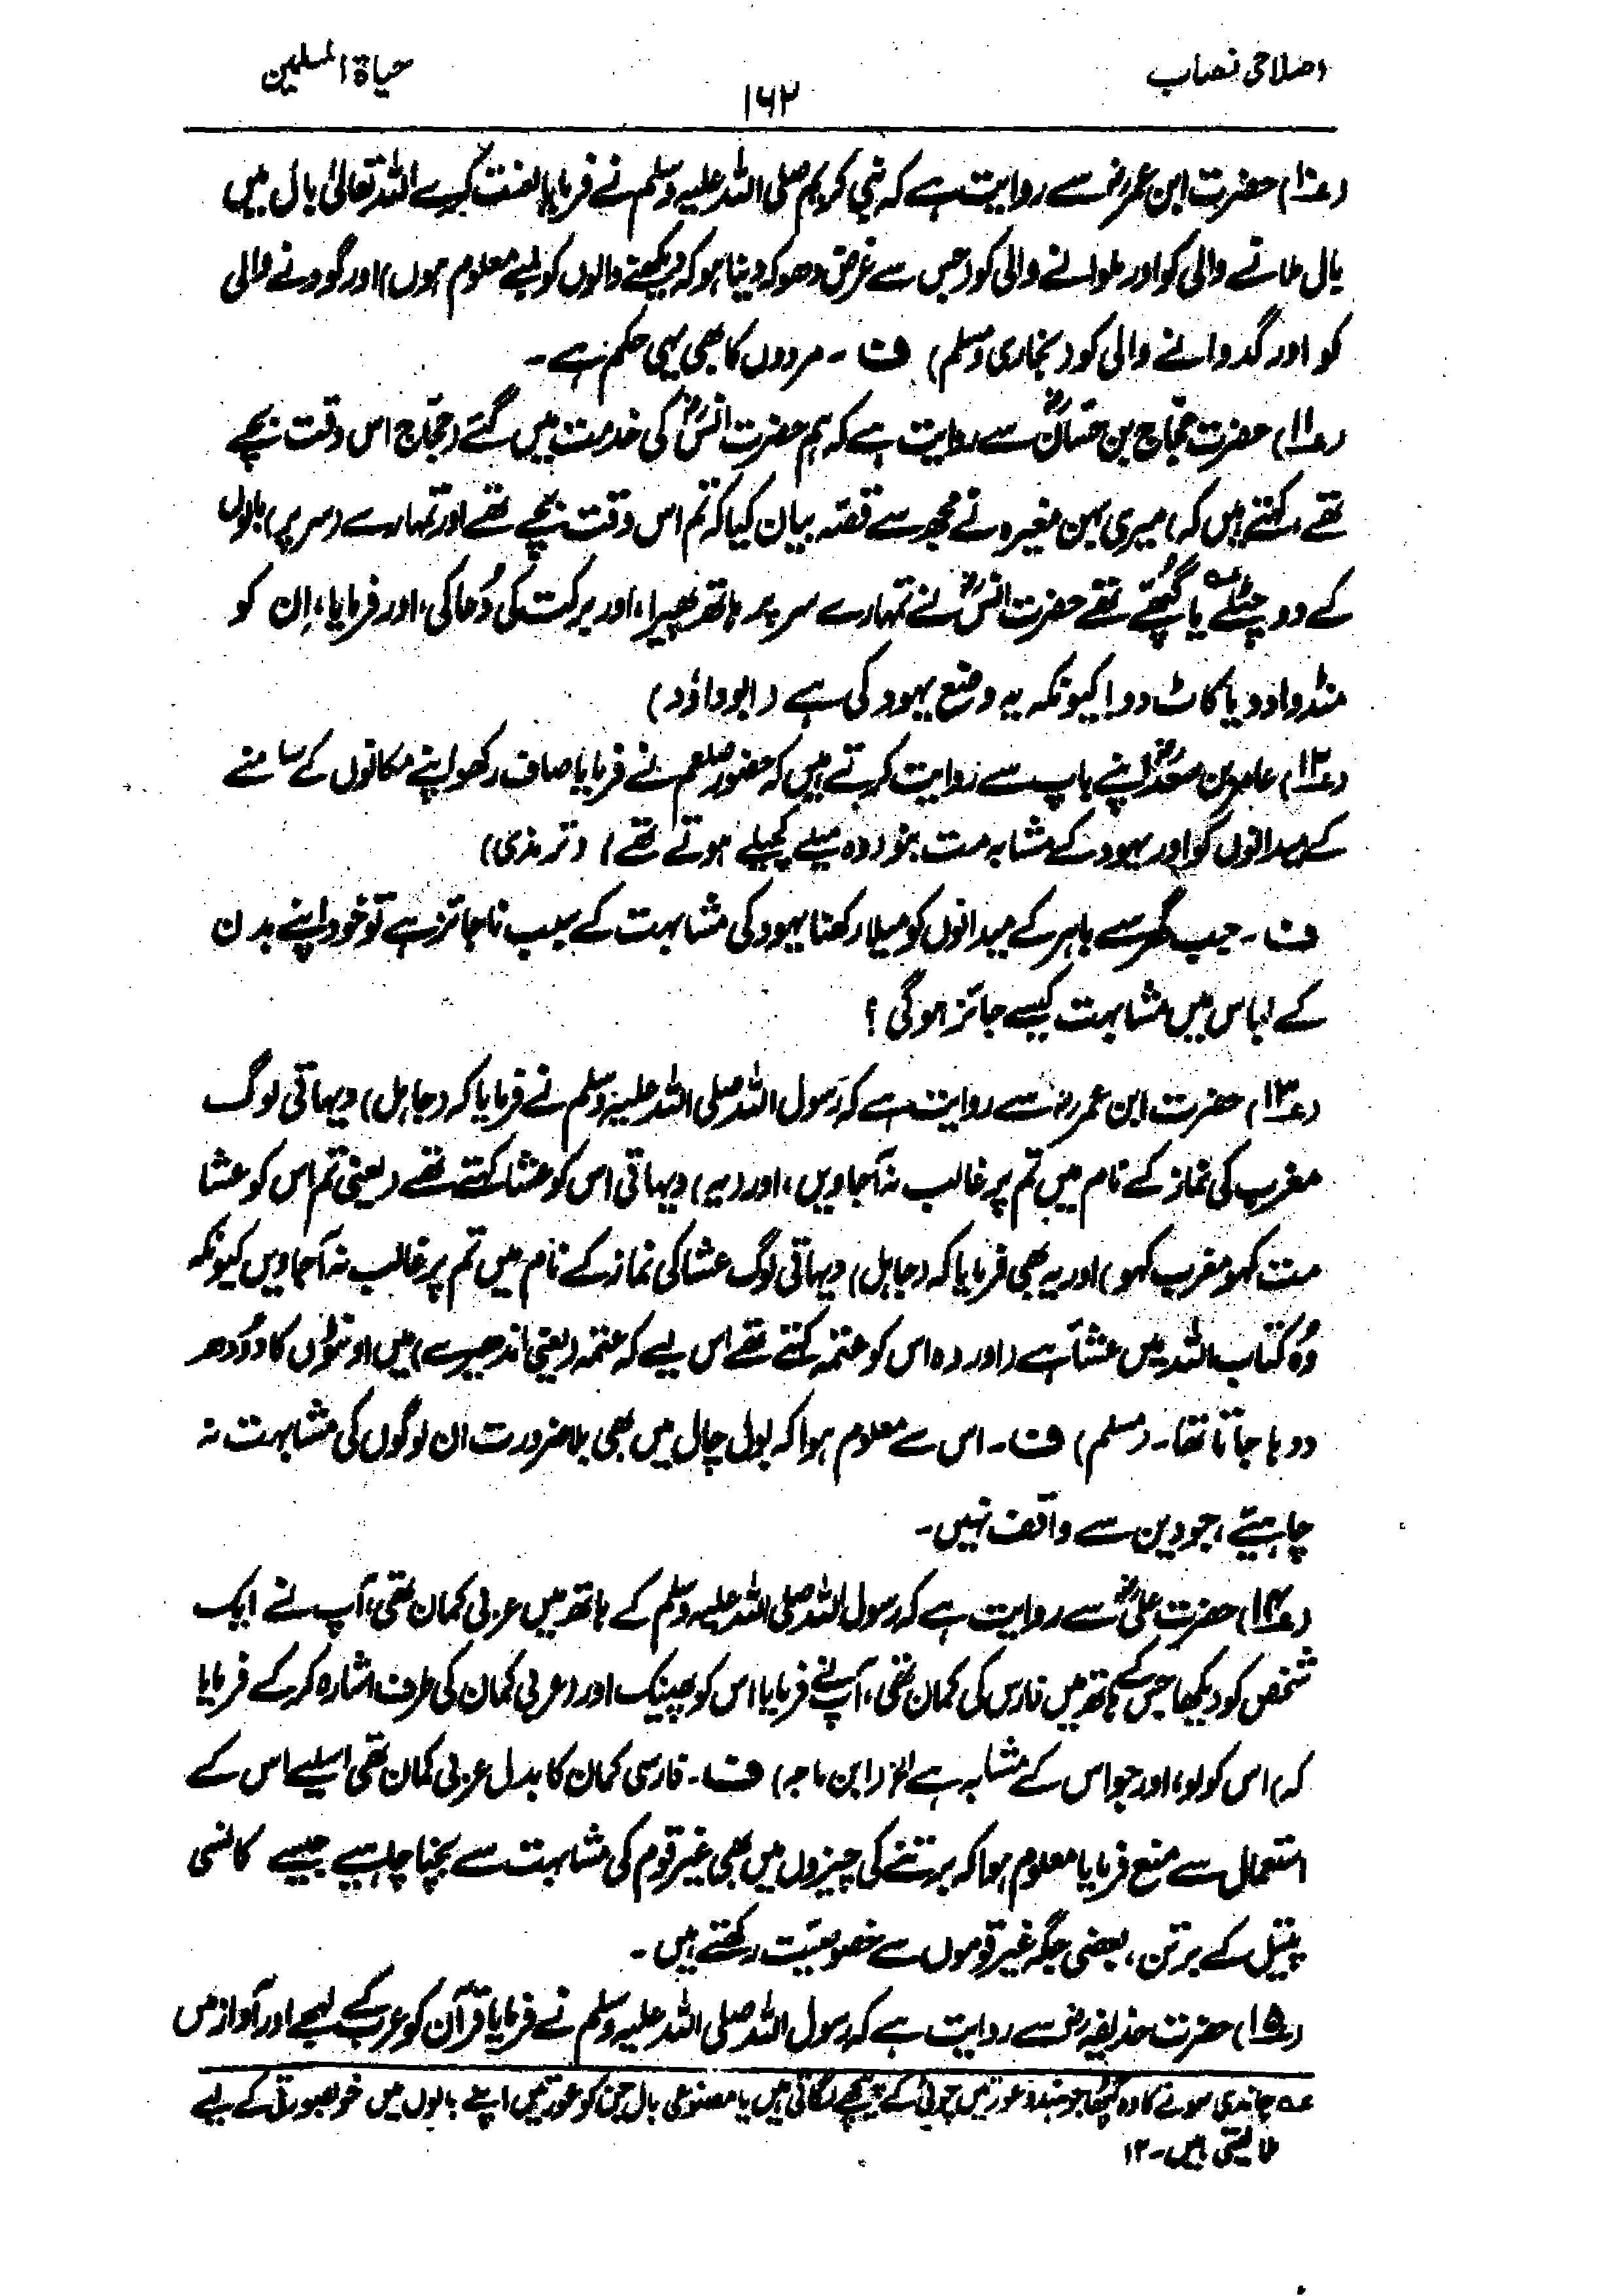 اصلاحی نصاب
حیاۃ المسلمین
۱۶۲
(۱۰) حضرت ابن عمرؓ سے روایت ہے کہ نبی کریم صلی اللہ علیہ وسلم نے فرمایا لعنت کرے اللہ تعالیٰ بال میں
بال ملانے والی کو اور ملوانے والی کو (جس سے غرض دھوکہ دینا ہو کہ دیکھنے والوں کو لمبے معلوم ہوں) اور گودنے والی
کو اور گدوانے والی کو (بخاری و مسلم) ف ۔ مردوں کا بھی یہی حکم ہے ۔
(۱۱) حضرت حجاج بن حسانؒ سے روایت ہے کہ ہم حضرت انسؓ کی خدمت میں گئے (حجاج اس وقت بچے
تھے، کہتے ہیں کہ) میری بہن مغیرہ نے مجھ سے قصہ بیان کیا کہ تم اس وقت بچے تھے اور تمہارے (سر پر) بالوں
کے دو چٹلے؎ یا گچھے تھے حضرت انسؓ نے تمہارے سر پر ہاتھ پھیرا، اور برکت کی دُعا کی، اور فرمایا، اِن کو
منڈوا دو یا کاٹ دو! کیونکہ یہ وضع یہود کی ہے (ابوداؤد)
(۱۲) عامر بن سعدؓ اپنے باپ سے روایت کرتے ہیں کہ حضور صلعم نے فرمایا صاف رکھو اپنے مکانوں کے سامنے
کے میدانوں کو اور یہود کے مشابہ مت بنو (وہ میلے کچیلے ہوتے تھے) (ترمذی)
ف ۔ جب گھر سے باہر کے میدانوں کو میلا رکھنا یہود کی مشابہت کے سبب ناجائز ہے تو خود اپنے بدن
کے لباس میں مشابہت کیسے جائز ہوگی ؟
(۱۳) حضرت ابن عمرؓ سے روایت ہے کہ رَسول اللہ صلی اللہ علیہ وسلم نے فرمایا کہ (جاہل) دیہاتی لوگ
مغرب کی نماز کے نام میں تم پر غالب نہ آجاویں، اور (یہ) دیہاتی اس کو عشا کہتے تھے (یعنی تم اس کو عشا
مت کہو مغرب کہو) اور یہ بھی فرمایا کہ (جاہل) دیہاتی لوگ عشا کی نماز کے نام میں تم پر غالب نہ آجاویں کیونکہ
وُہ کتاب اللہ میں عشآ ہے (اور وہ اس کو عتمہ کہتے تھے اس لیے کہ عتمہ (یعنی اندھیرے) میں اونٹوں کا دُودھ
دوہا جاتا تھا ۔ (مسلم) ف ۔ اس سے معلوم ہوا کہ بول چال میں بھی بلا ضرورت ان لوگوں کی مشابہت نہ
چاہیئے، جو دین سے واقف نہیں ۔
(۱۴) حضرت علیؓ سے روایت ہے کہ رسول اللہ صلی اللہ علیہ وسلم کے ہاتھ میں عربی کمان تھی، آپ نے ایک
شخص کو دیکھا جس کے ہاتھ میں فارس کی کمان تھی، آپ نے فرمایا اس کو پھینک اور (عربی کمان کی طرف اشارہ کر کے فرمایا
کہ) اس کو لو، اور جو اس کے مشابہ ہے الخ (ابن ماجہ) ف ۔ فارسی کمان کا بدل عربی کمان تھی اسلیے اس کے
استعمال سے منع فرمایا معلوم ہوا کہ برتنے کی چیزوں میں بھی غیر قوم کی مشابہت سے بچنا چاہیے جیسے کانسی
پیتل کے برتن، بعضی جگہ غیر قوموں سے خصوصیّت رکھتے ہیں ۔
(۱۵) حضرت حذیفہؓ سے روایت ہے کہ رسول اللہ صلی اللہ علیہ وسلم نے فرمایا قرآن کو عرب کے لہجے اور آواز میں
عہ چاندی سونے کا وہ گچھا جو ہندو عورتیں چوٹی کے پیچھے لگاتی ہیں یا مصنوعی بال جن کو عورتیں اپنے بالوں میں خوبصورتی کے لیے
ملا لیتی ہیں ۔ ۱۲